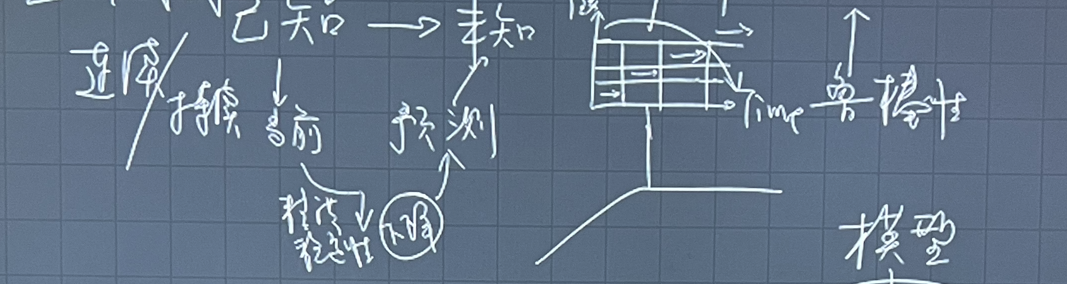 已知 → 未知
连续/持续
当前
预测
下降
稳定性
Time
鲁棒性
模型